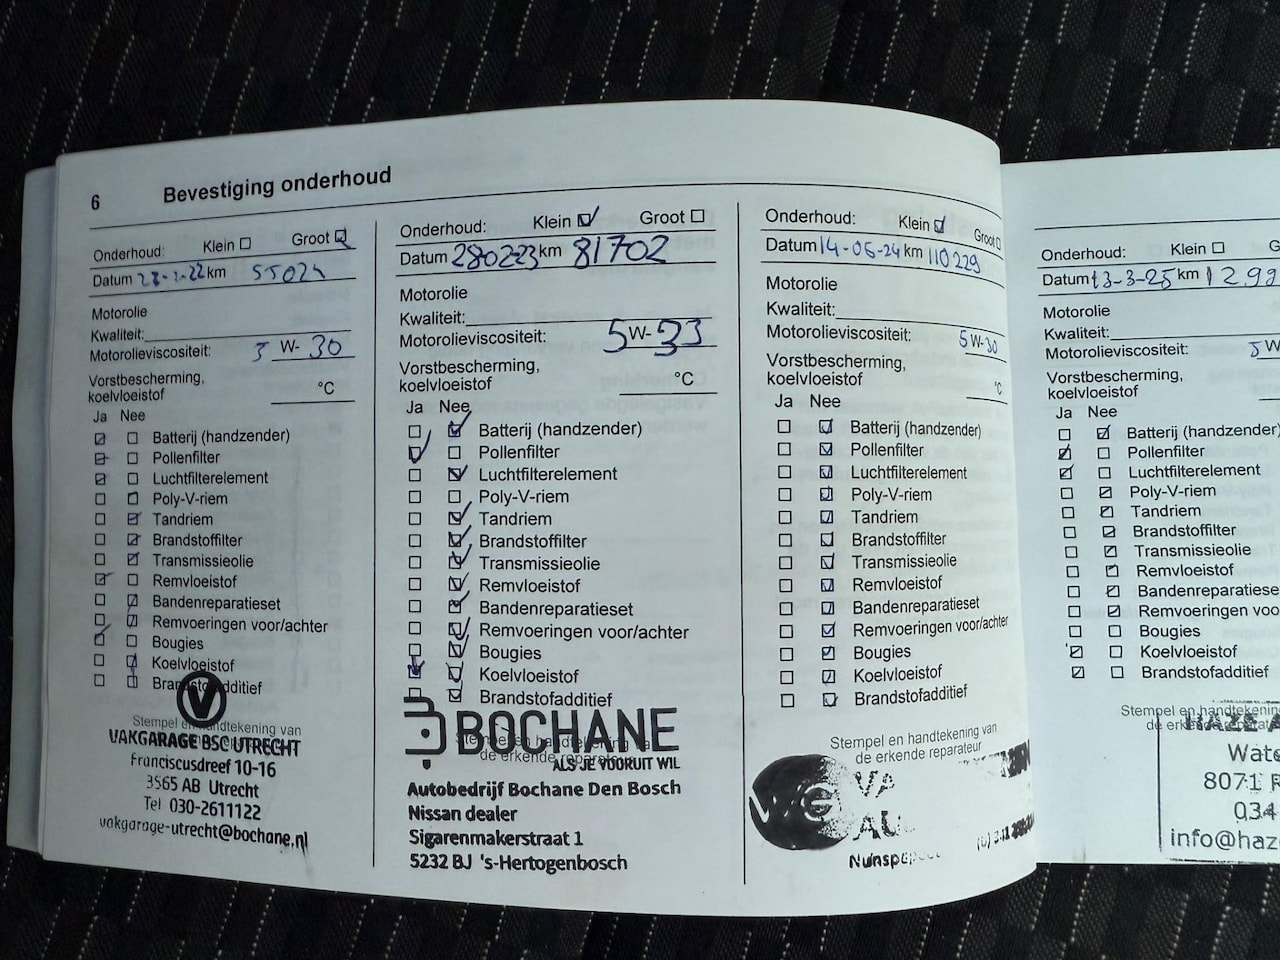 6 Bevestiging onderhoud
Onderhoud: Klein Groot
Datum 28-2-22 km 55024
Motorolie
Kwaliteit:
Motorolieviscositeit: 5 W- 30
Vorstbescherming,
koelvloeistof °C
Ja Nee
Batterij (handzender)
Pollenfilter
Luchtfilterelement
Poly-V-riem
Tandriem
Brandstoffilter
Transmissieolie
Remvloeistof
Bandenreparatieset
Remvoeringen voor/achter
Bougies
Koelvloeistof
Brandstofadditief
Stempel en handtekening van
VAKGARAGE BSC UTRECHT
Franciscusdreef 10-16
3565 AB Utrecht
Tel 030-2611122
vakgarage-utrecht@bochane.nl
Onderhoud: Klein Groot
Datum 28-02-23 km 81702
Motorolie
Kwaliteit:
Motorolieviscositeit: 5 W- 33
Vorstbescherming,
koelvloeistof °C
Ja Nee
Batterij (handzender)
Pollenfilter
Luchtfilterelement
Poly-V-riem
Tandriem
Brandstoffilter
Transmissieolie
Remvloeistof
Bandenreparatieset
Remvoeringen voor/achter
Bougies
Koelvloeistof
Brandstofadditief
BOCHANE
Stempel en handtekening van
de erkende reparateur
ALS JE VOORUIT WIL
Autobedrijf Bochane Den Bosch
Nissan dealer
Sigarenmakerstraat 1
5232 BJ 's-Hertogenbosch
Onderhoud: Klein Groot
Datum 14-05-24 km 110229
Motorolie
Kwaliteit:
Motorolieviscositeit: 5 W- 30
Vorstbescherming,
koelvloeistof °C
Ja Nee
Batterij (handzender)
Pollenfilter
Luchtfilterelement
Poly-V-riem
Tandriem
Brandstoffilter
Transmissieolie
Remvloeistof
Bandenreparatieset
Remvoeringen voor/achter
Bougies
Koelvloeistof
Brandstofadditief
Stempel en handtekening van
de erkende reparateur
Onderhoud: Klein
Datum 13-3-25 km 1299
Motorolie
Kwaliteit:
Motorolieviscositeit: 5 W
Vorstbescherming,
koelvloeistof
Ja Nee
Batterij (handzender)
Pollenfilter
Luchtfilterelement
Poly-V-riem
Tandriem
Brandstoffilter
Transmissieolie
Remvloeistof
Bandenreparatieset
Remvoeringen voo
Bougies
Koelvloeistof
Brandstofadditief
Stempel en handtekening
HAZE A
Wate
8071
034
info@haze